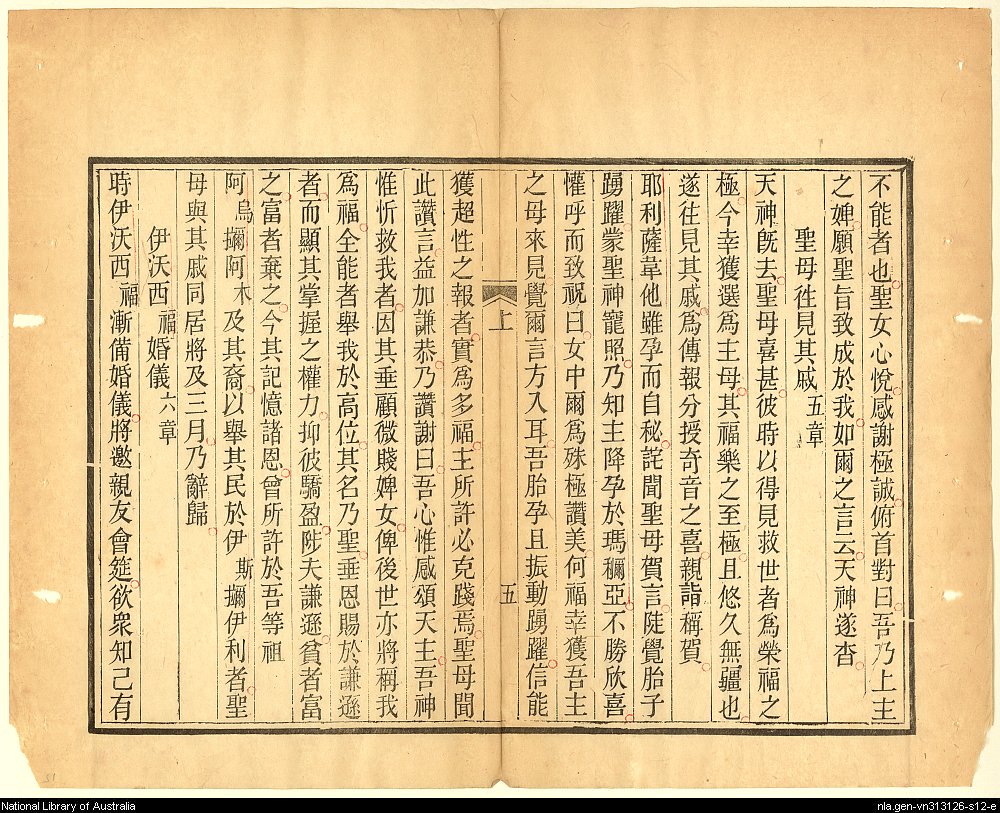 不能者也聖女心悅感謝極誠俯首對曰吾乃上主
之婢願聖旨致成於我如爾之言云天神遂杳
聖母徃見其戚五章
天神旣去聖母喜甚彼時以得見救世者爲榮福之
極今幸獲選爲主母其福樂之至極且悠久無疆也
遂往見其戚爲傳報分授奇音之喜親詣稱賀
耶利薩韋他雖孕而自秘詫聞聖母賀言陡覺胎子
踴躍蒙聖神寵照乃知主降孕於瑪穪亞不勝欣喜
懽呼而致祝曰女中爾爲殊極讚美何福幸獲吾主
之母來見覺爾言方入耳吾胎孕且振動踴躍信能
上
五
獲超性之報者實爲多福主所許必克踐焉聖母聞
此讚言益加謙恭乃讚謝曰吾心惟感頌天主吾神
惟忻救我者因其垂顧微賤婢女俾後世亦將稱我
爲福全能者舉我於高位其名乃聖垂恩賜於謙遜
者而顯其掌握之權力抑彼驕盈陟夫謙遜貧者富
之富者棄之今其記憶諸恩曾所許於吾等祖
阿烏攦阿木及其裔以舉其民於伊斯攦伊利者聖
母與其戚同居將及三月乃辭歸
伊沃西福婚儀六章
時伊沃西福漸備婚儀將邀親友會筵欲衆知己有
51
National Library of Australia
nla.gen-vn313126-s12-e